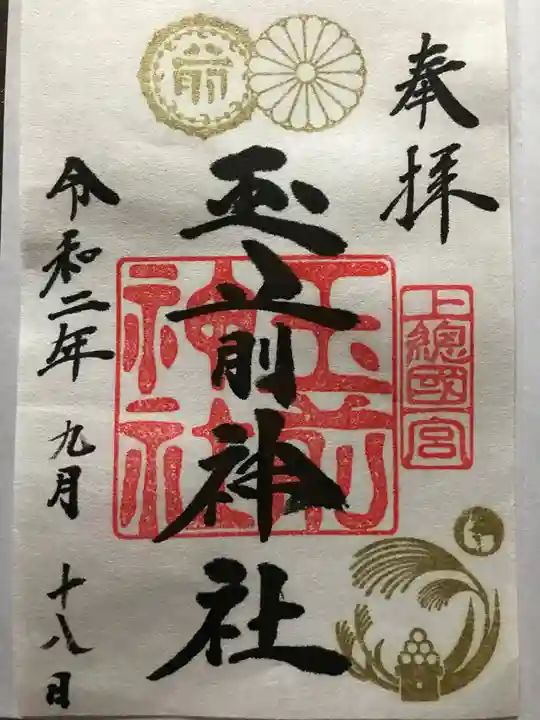 奉拝
上總國一宮
玉前神社
玉前神社
令和二年
九月
十八日
前